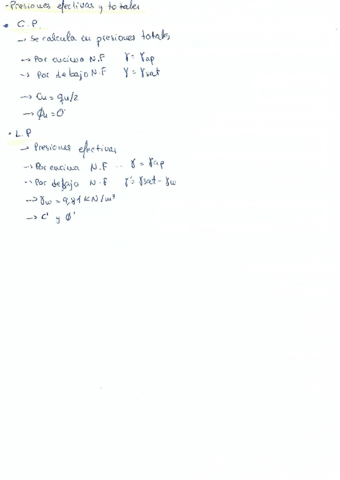 -Presiones efectivas y totales
• C.P.
→ Se calcula en presiones totales
→ Por encima N.F γ = γap
→ Por debajo N.F γ = γsat
→ Cu = qu/2
→ ϕu = 0°
• L.P
→ Presiones efectivas
→ Por encima N.F .. γ = γap
→ Por debajo N.F γ' = γsat - γw
→ γw = 9,81 kN/m³
→ C' y ϕ'